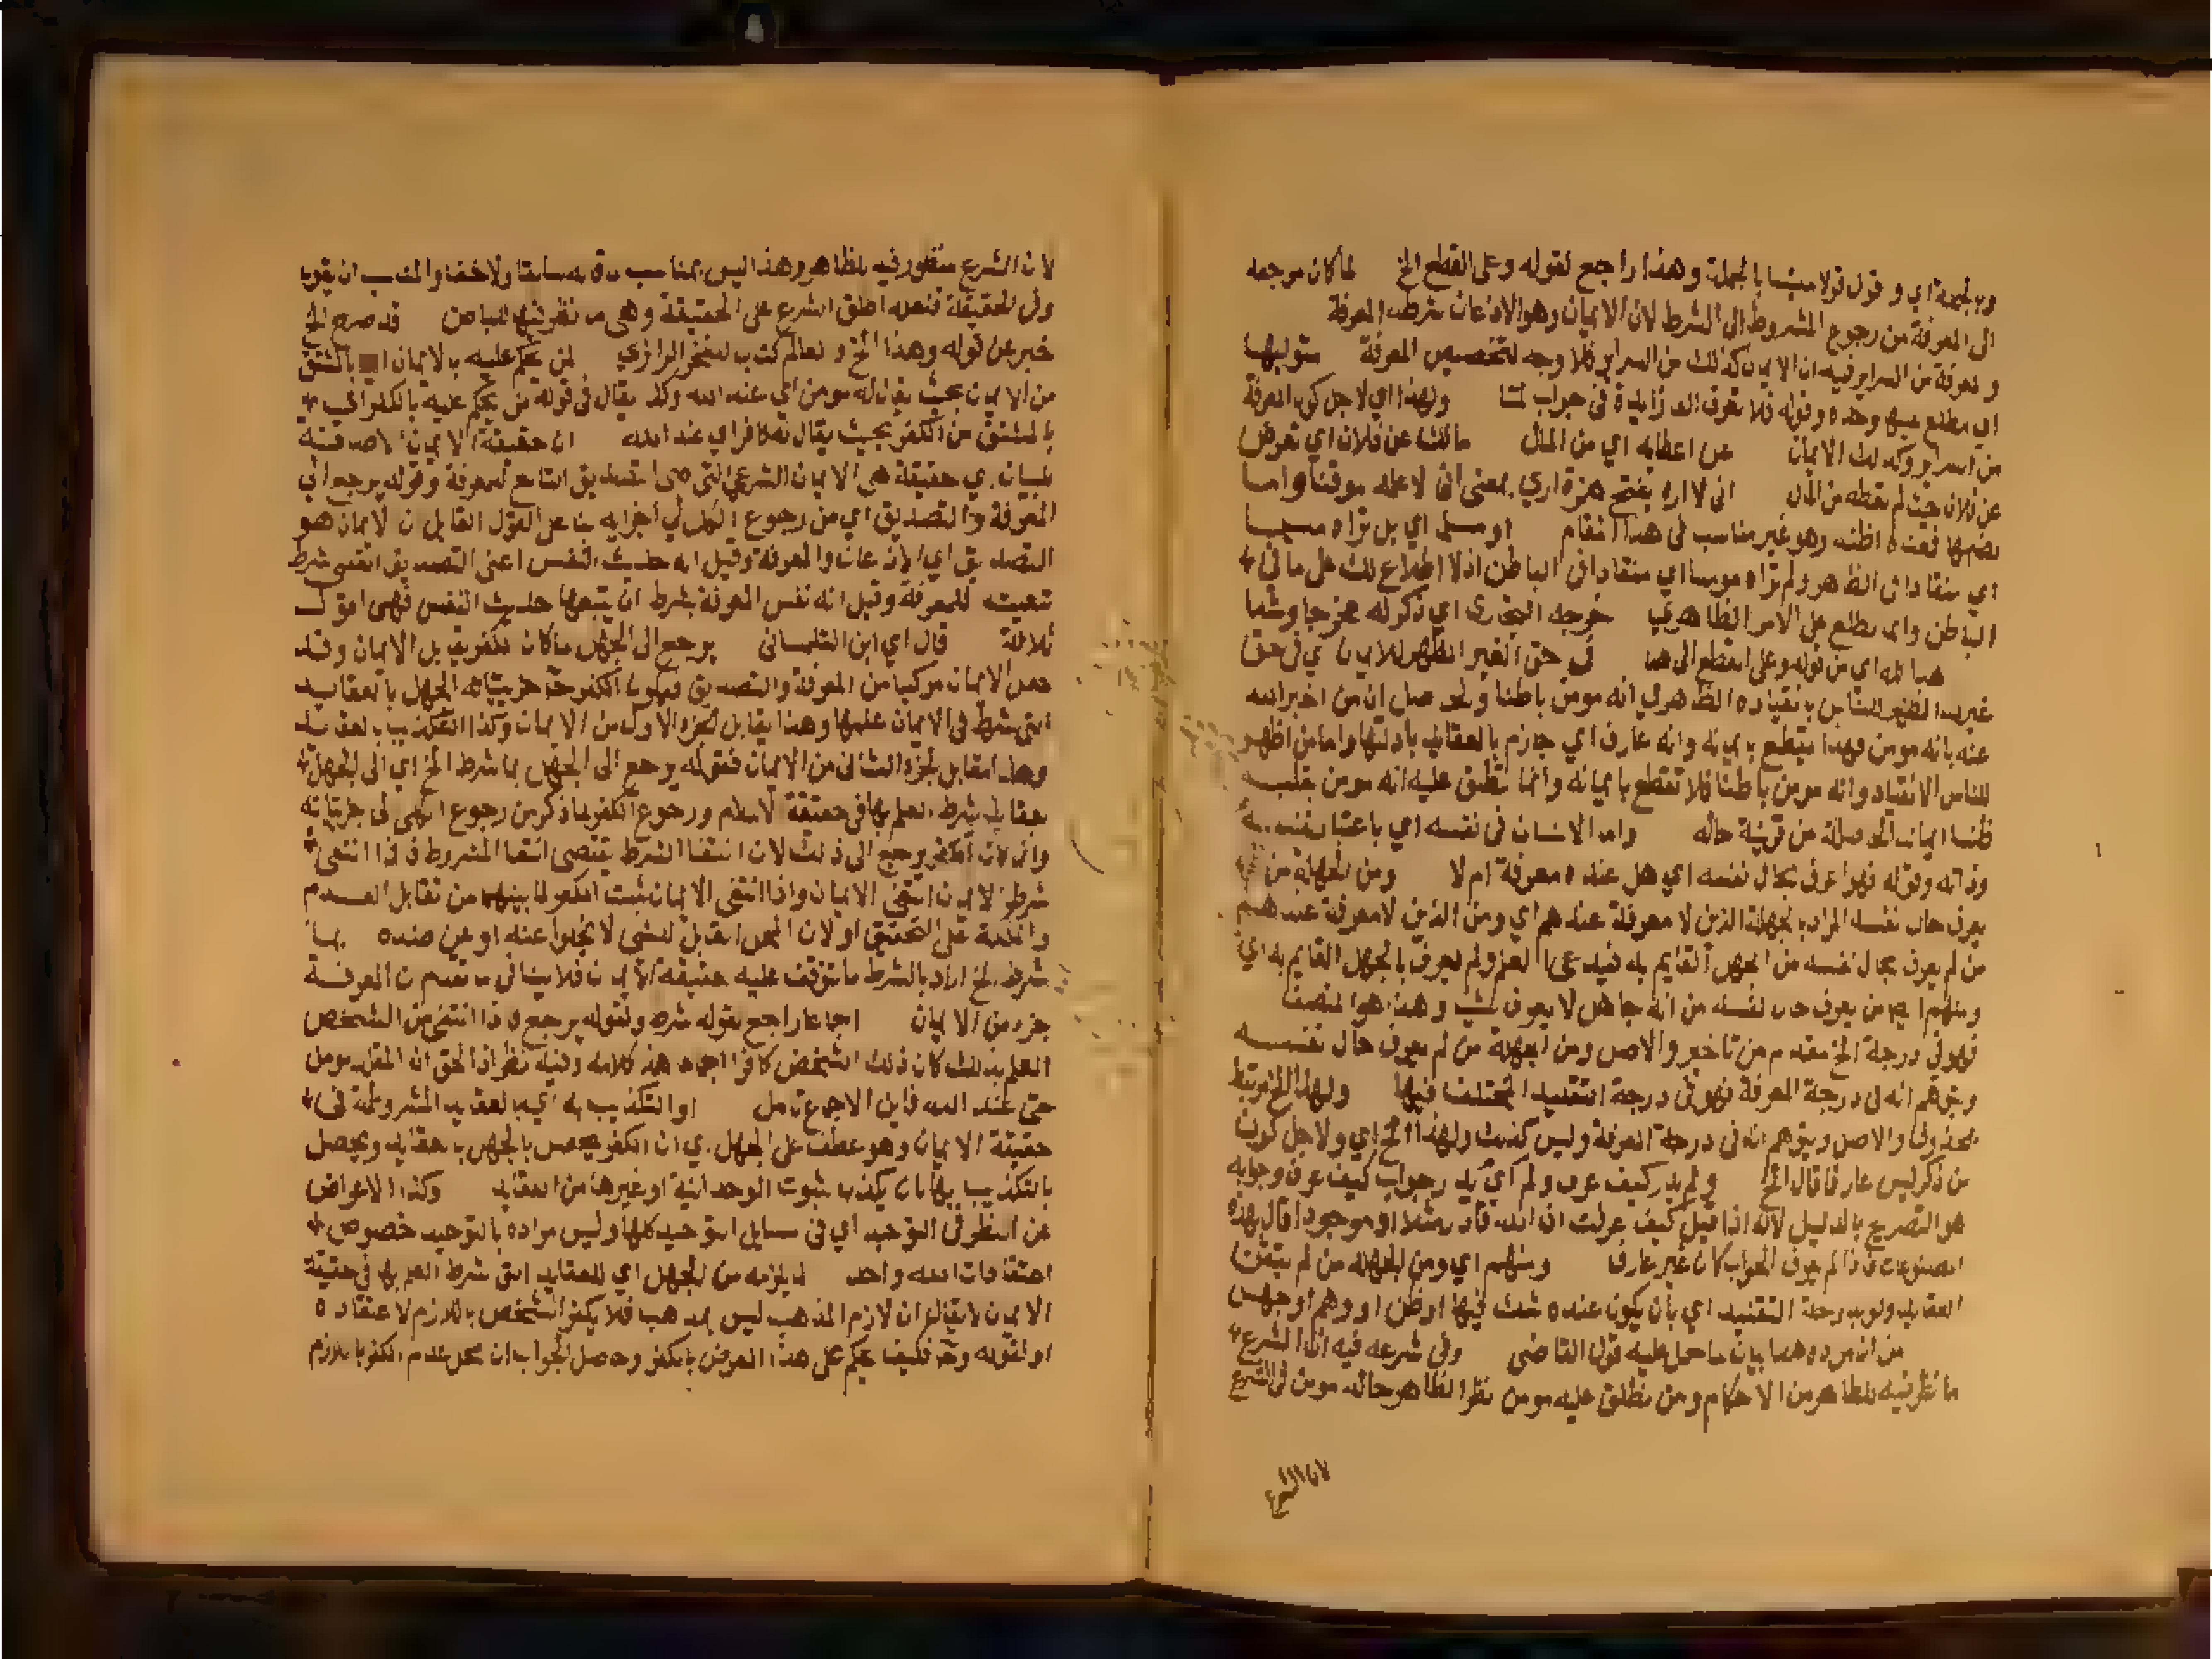 وبالجملة اي و قول قولا ملتبسا بالجملة وهذا راجع لقوله وعلى القطع الخ لما كان مرجعه
الى المعرفة من رجوع المشروط الى الشرط لان الايمان وهو الاذعان شرطه المعرفة
و المعرفة من السراير فيه ان الايمان كذلك من السراير فلا وجه لتخصيص المعرفة متوليها
اي مطلع عليها وحده وقوله فلا تعرف الفا زايدة في جواب لما ولهذا اي لاجل كون المعرفة
من السراير وكذلك الايمان عن اعطايه اي من المال مالك عن فلان اي تعرض
عن فلان حيث لم تعطه من المال اني لا اراه بفتح همزة اري بمعنى اني لا علمه موقنا واما
بضمها فمعناه اظنه وهو غير مناسب في هذا المقام او مسلما اي بل تراه مسلما
اي منقادا في الظاهر ولم تراه مومنا اي منقادا في الباطن اذ لا اطلاع لك على ما في
الباطن وانما تطلع على الامر الظاهري خرجه البخاري اي ذكر له مخرجا وسندا
هذا كله اي من قوله وعلى القطع الى هنا في حق الغير المظهر للايمان اي في حق
غيرك المظهر للناس بانقياده الظاهري انه مومن باطنا والحاصل ان من اخبر الله
عنه بانه مومن فهذا يقطع بايمانه وانه عارف اي جازم بالعقايد بادلتها واما من اظهر
للناس الانقياد وانه مومن باطنا فلا تقطع بايمانه وانما تطلق عليه انه مومن بغلب
ظننا ايمانه الحاصلة من قرينة حاله واما الانسان في نفسه اي باعتبار نفسه
وذاته وقوله فهو اعرف بحال نفسه اي هل عنده معرفة ام لا ومن الجهلة من
يعرف حال نفسه المراد بالجهلة الذين لا معرفة عندهم اي ومن الذين لا معرفة عندهم
من لم يعرف بحال نفسه من الجهل القايم به فيدعي العلم ولم يعرف بالجهل القايم به اي
ومنهم اي من يعرف حال نفسه من انه جاهل لا يعرف شي وهذا هو المنصف
فهو في درجة الخ مقدم من تاخير والاصل ومن الجهلة من لم يعرف حال نفسه
ويتوهم انه في درجة المعرفة فهو في درجة التقليد المختلف فيها ولهذا الخ مرتبط
بمحذوف والاصل ويتوهم انه في درجة المعرفة وليس كذلك ولهذا الخ اي ولاجل كون
من ذكر ليس عارفا قال الخ ولم يدر كيف عرف ولم اي يدر جواب كيف عرف وجوابه
هو التصريح بالدليل لانه اذا قيل كيف عرفت ان الله قادر مثلا او موجود قال بهذه
المصنوعات فاذا لم يعرف الجواب كان غير عارف ومنهم اي ومن الجهلة من لم يتقن
العقايد ولو بدرجة التقليد اي بان يكون عنده شك فيها او ظن او وهم او جهل
من ان مراده هنا بيان ما حمل عليه قول القاضي وفي شرعه فيه ان الشرع
ما نظر فيه للظاهر من الاحكام ومن نطلق عليه مومن نظرا لظاهر حاله مومن في الشرع
لان الشرع
لان الشرع منظور فيه للظاهر وهذا ليس بمناسب ما قاله سابقا ولاحقا والمناسب ان يقول
وفي الحقيقة فلعله اطلق الشرع على الحقيقة وهي ما نظر فيها للباطن قد صرح الخ
خبر عن قوله وهذا الخ و المعالم كتاب للفخر الرازي لمن يحكم عليه بالايمان اي بالمشتق
من الايمان بحيث يقال له مومن اي عند الله وكذا يقال في قوله من يحكم عليه بالكفر اي
بالمشتق من الكفر بحيث يقال له كافر اي عند الله ان حقيقة الايمان الاضافة
للبيان اي حقيقة هي الايمان الشرعي التي هي التصديق التابع للمعرفة وقوله يرجع الى
المعرفة والتصديق اي من رجوع الكل الى اجزايه بنا على القول القايل ان الايمان هو
التصديق اي الاذعان والمعرفة وقيل انه حديث النفس اعني التصديق النفسي بشرط
تبعيته للمعرفة وقيل انه نفس المعرفة بشرط ان يتبعها حديث النفس فهي اقوال
ثلاثة قال اي ابن التلمساني يرجع الى الجهل ما كان الكفر يقابل الايمان وقد
جعل الايمان مركبا من المعرفة والتصديق فيكون الكفر جزئياته الجهل بالعقايد
التي شرط في الايمان علمها وهذا يقابل الجزء الاول من الايمان وكذا التكذيب بالعقايد
وهذا مقابل الجزء الثاني من الايمان فقوله يرجع الى الجهل بما شرط الخ اي الى الجهل
بعقايد شرط العلم بها في حقيقة الاسلام ورجوع الكفر لما ذكر من رجوع الكلي الى جزئياته
وانما كان الكفر يرجع الى ذلك لان انتفا الشرط يقتضي انتفا المشروط فاذا انتفى
شرط الايمان انتفى الايمان واذا انتفى الايمان ثبت الكفر لما بينهما من تقابل العدم
والملكة على التحقيق او لان المحل القابل للشي لا يخلو عنه او عن ضده بما
شرط الخ اراد بالشرط ما تتوقف عليه حقيقة الايمان فلا ينافي ما تقدم ان المعرفة
جزء من الايمان اجماعا راجع لقوله شرط ولقوله يرجع فاذا انتفى من الشخص
العلم بذلك كان ذلك الشخص كافرا اجماعا هذا كلامه وفيه نظر اذ الحق ان المقلد مومن
حتى عند الله فاين الاجماع تامل او التكذيب به اي بالعقايد المشروطة في
حقيقة الايمان وهو عطف على الجهل اي ان الكفر يحصل بالجهل بالعقايد ويحصل
بالتكذيب بها بان يكذب بثبوت الوحدانية او غيرها من العقايد وكذا الاعراض
عن النظر في التوحيد اي في مسايل التوحيد كلها وليس مراده بالتوحيد خصوص
اعتقاد ان الله واحد لما يلزمه من الجهل اي للعقايد التي شرط العلم بها في حقيقة
الايمان لا يقال ان لازم المذهب ليس بمذهب فلا يكفر الشخص باللازم لاعتقاده
او لقوله وحينئذ فكيف يحكم على هذا المعرض بالكفر وحاصل الجواب ان محل عدم الكفر باللازم